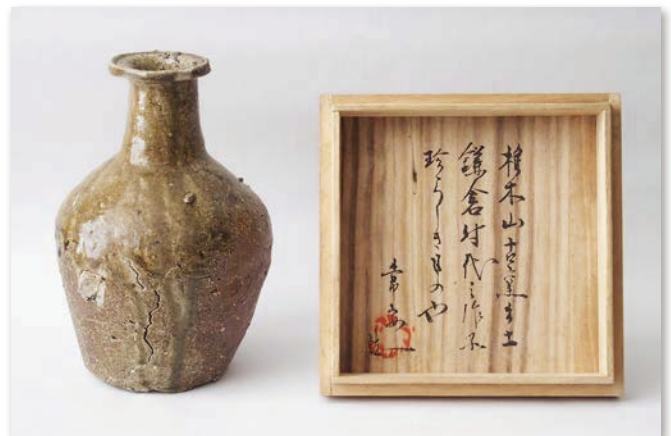 椎木山古窯出土
鎌倉時代之作品
珍らしきものや
常安